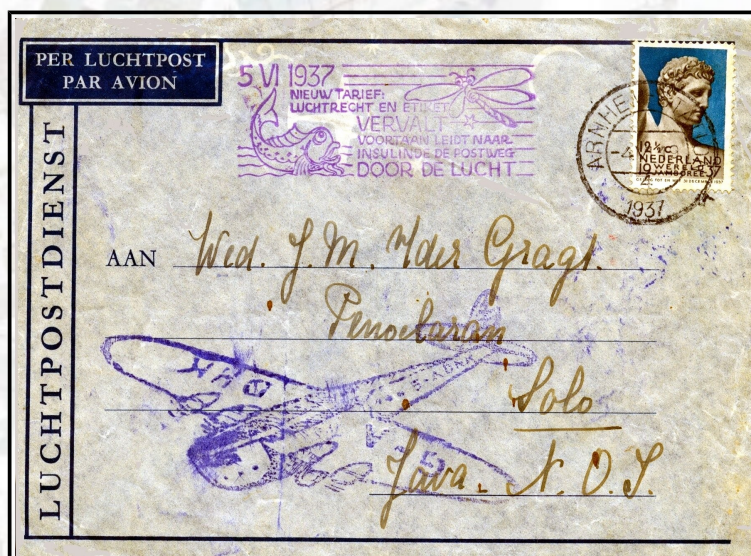 PER LUCHTPOST
PAR AVION
LUCHTPOSTDIENST
5 VI 1937
NIEUW TARIEF:
LUCHTRECHT EN ETIKET
VERVALT
VOORTAAN LEIDT NAAR
INSULINDE DE POSTWEG
DOOR DE LUCHT
ARNHEM
1937
12½ C
NEDERLAND
WERELD
JAMBOREE
37
AAN Wed. J. M. v/der Gragt.
Penoelaran
Solo
Java. N. O. I.